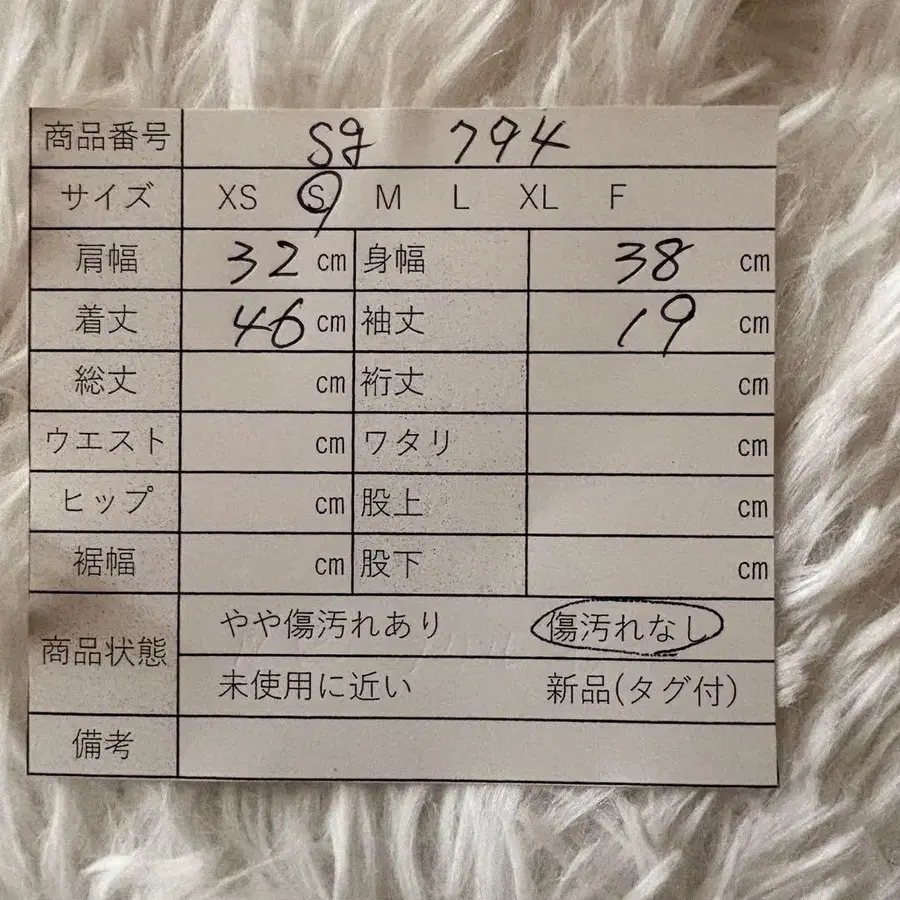 商品番号 sg 794
サイズ XS S M L XL F
肩幅 32 cm 身幅 38 cm
着丈 46 cm 袖丈 19 cm
総丈 cm 裄丈 cm
ウエスト cm ワタリ cm
ヒップ cm 股上 cm
裾幅 cm 股下 cm
商品状態 やや傷汚れあり 傷汚れなし
未使用に近い 新品(タグ付)
備考